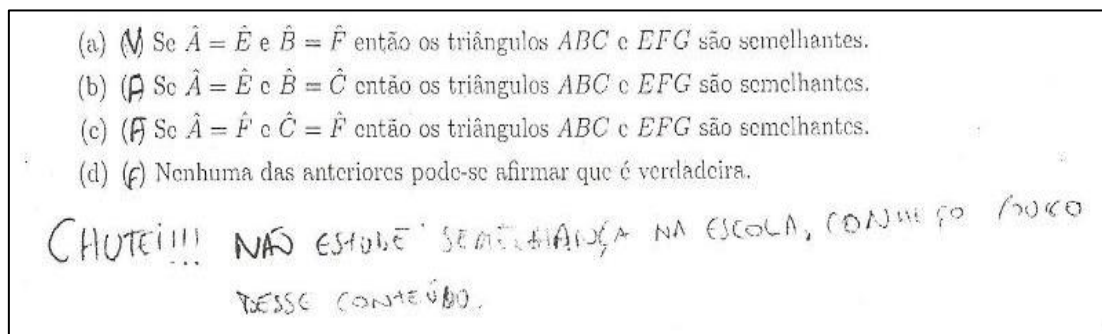 (a) (V) Se Â = Ê e B̂ = F̂ então os triângulos ABC e EFG são semelhantes.
(b) (F) Se Â = Ê e B̂ = Ĉ então os triângulos ABC e EFG são semelhantes.
(c) (F) Se Â = F̂ e Ĉ = F̂ então os triângulos ABC e EFG são semelhantes.
(d) (F) Nenhuma das anteriores pode-se afirmar que é verdadeira.
CHUTEI!!! NÃO ESTUDEI SEMELHANÇA NA ESCOLA, CONHEÇO POUCO
DESSE CONTEÚDO.